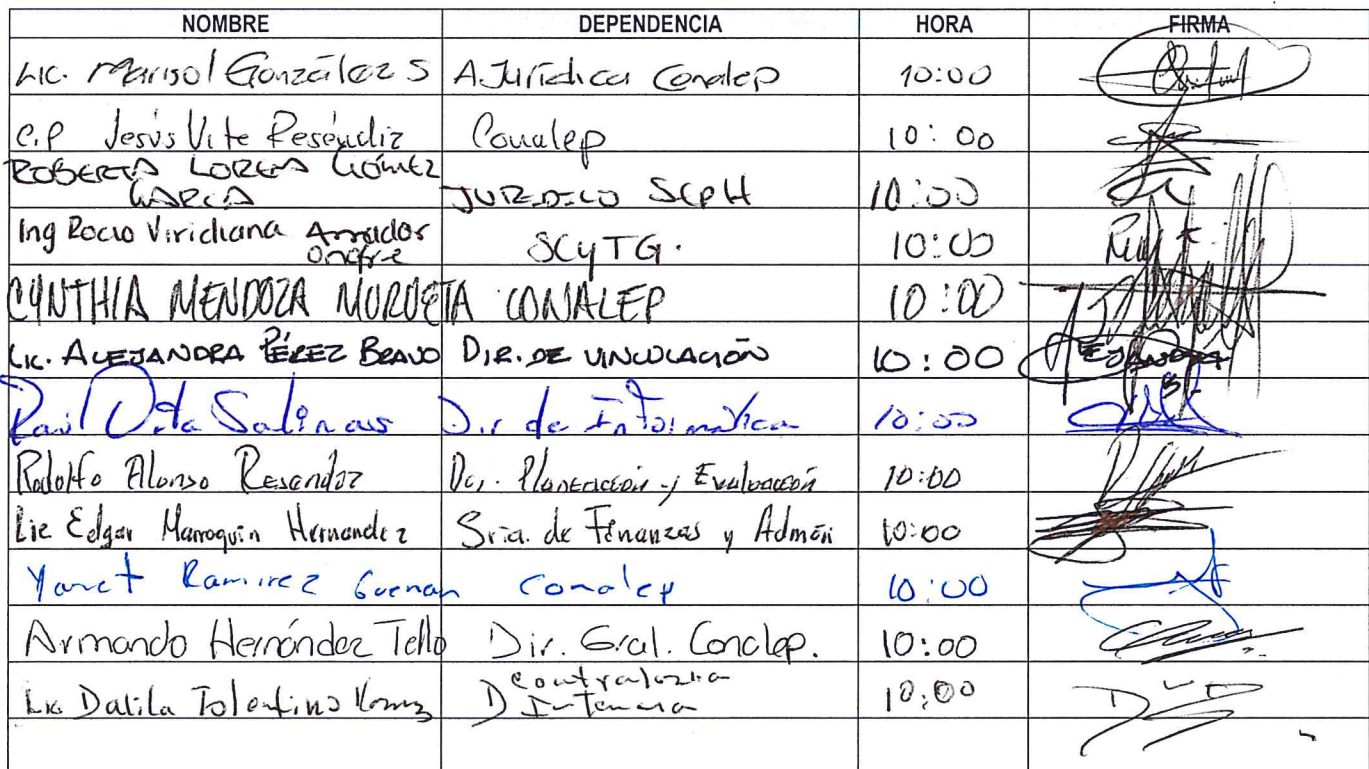 NOMBRE DEPENDENCIA HORA FIRMA
Lic. Marisol González S A. Jurídica Conalep 10:00
C.P Jesús Vite Reséndiz Conalep 10:00
ROBERTA LORENA GÓMEZ
GARCIA JURIDICO SCPH 10:00
Ing Rocio Viridiana Amador
Onofre SCyTG. 10:00
CYNTHIA MENDOZA MURGETA CONALEP 10:00
Lic. ALEJANDRA PÉREZ BRAVO DIR. DE VINCULACIÓN 10:00 ALEJANDRA
Raúl Salinas Dir de Informática 10:00
Rodolfo Alonso Resendiz Dir. Planeación y Evaluación 10:00
Lic Edgar Marroquin Hernandez Sria. de Finanzas y Admón 10:00
Yanet Ramirez Conalep 10:00
Armando Hernández Tello Dir. Gral. Conalep. 10:00
Lic Dalila Tolentino Contraloria
Interna 10:00